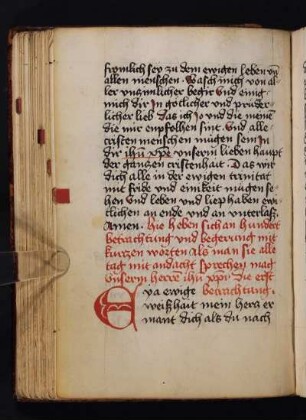 fromlich sey zu dem ewigen leben vn
allen menschen. Wasch mich von al
ler vnzimlicher begir vnd einig
mich dir in gotlicher vnd pruder
licher lieb das ich jo vnd die menē
die mir enpfolhen sint. Vnd alle
cristen menschen mügen sein in
dir ihū xp̄e vnserm lieben haupt
der ganczen cristenhait. Das wir
dich alle in der ewigen trinitat
mit fride vnd einikeit mügen se
hen vnd leben vnd liep haben ewi
clichen an ende vnd an vnterlasz
Amen. Hie heben sich an hundert
betrachtung vnd begerung mit
kurczen worten als man sie alle
tag mit andacht sprechen mag
vnserm herre ihū xp̄i Die erst
Eya ewige betrachtung.
weiszhait mein hers er
mant dich als du nach